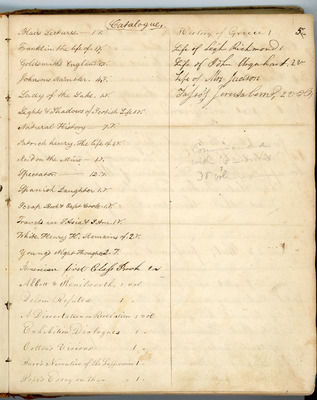 Catalogue.
5
Blair Lectures — 1 V.
Franklin the life of 1 V.
Goldsmith England
Johnsons Rambler 4 V.
Lady of the Lake. 1 V.
Lights & Shadows of Scotish Life 1 V.
Natural History — 7 V.
Patrick Henry, the life of 1 V.
on the Mind — 1 V.
Spectator — 12 V.
Spanish Daughter 1 V.
Scrap Book & Capt Cook 1 V.
Travels in & 1 V.
White Henry K. Remains of 2 V.
Youngs Night Thoughts 1 V.
American first Class Book
Abbott &
Deism Refuted 1
A Dissertation on Revelation 1 vol
Exhibition Dialogues 1
Cottons Visions 1
Narrative of the 1
Popes Essay on Man
History of Greece 1
Life of Legh Richmond 1
Life of John Urquhart, 2 v
Life of Mrs Judson